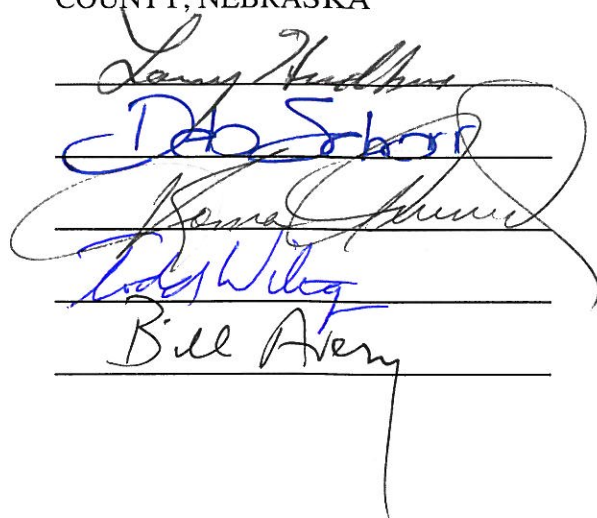 COUNTY, NEBRASKA
Larry Hudkins
Deb Schorr
Roma
Todd Wiltg
Bill Avery